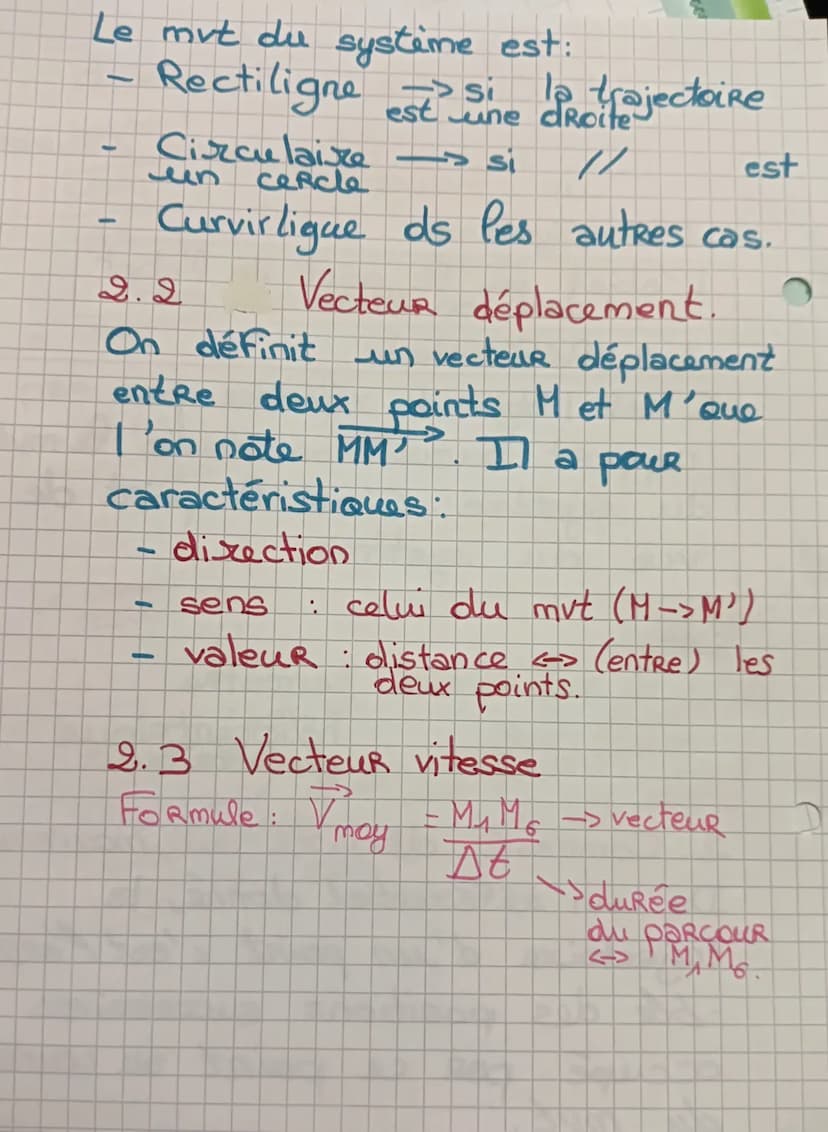 Le mvt du système est:
- Rectiligne → si la trajectoire
est une droite
- Circulaire → si // est
un cercle
- Curvirligue ds les autres cas.
2.2 Vecteur déplacement.
On définit un vecteur déplacement
entre deux points M et M' que
l'on note MM'. Il a pour
caractéristiques:
- direction
- sens : celui du mvt (M→M')
- valeur : distance ↔ (entre) les
deux points.
2.3 Vecteur vitesse
Formule: V moy = M1M6 → vecteur
Δt
↘ durée
du parcour
↔ M1M6.